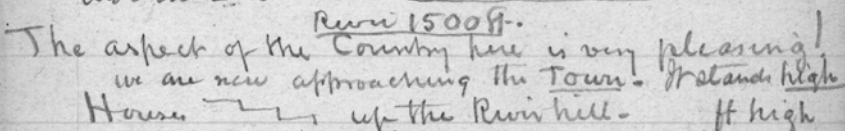 Ruwi 1500 ft.
The aspect of the Country here is very pleasing!
we are now approaching the Town. It stands high
Houses up the Ruwi hill - ft high